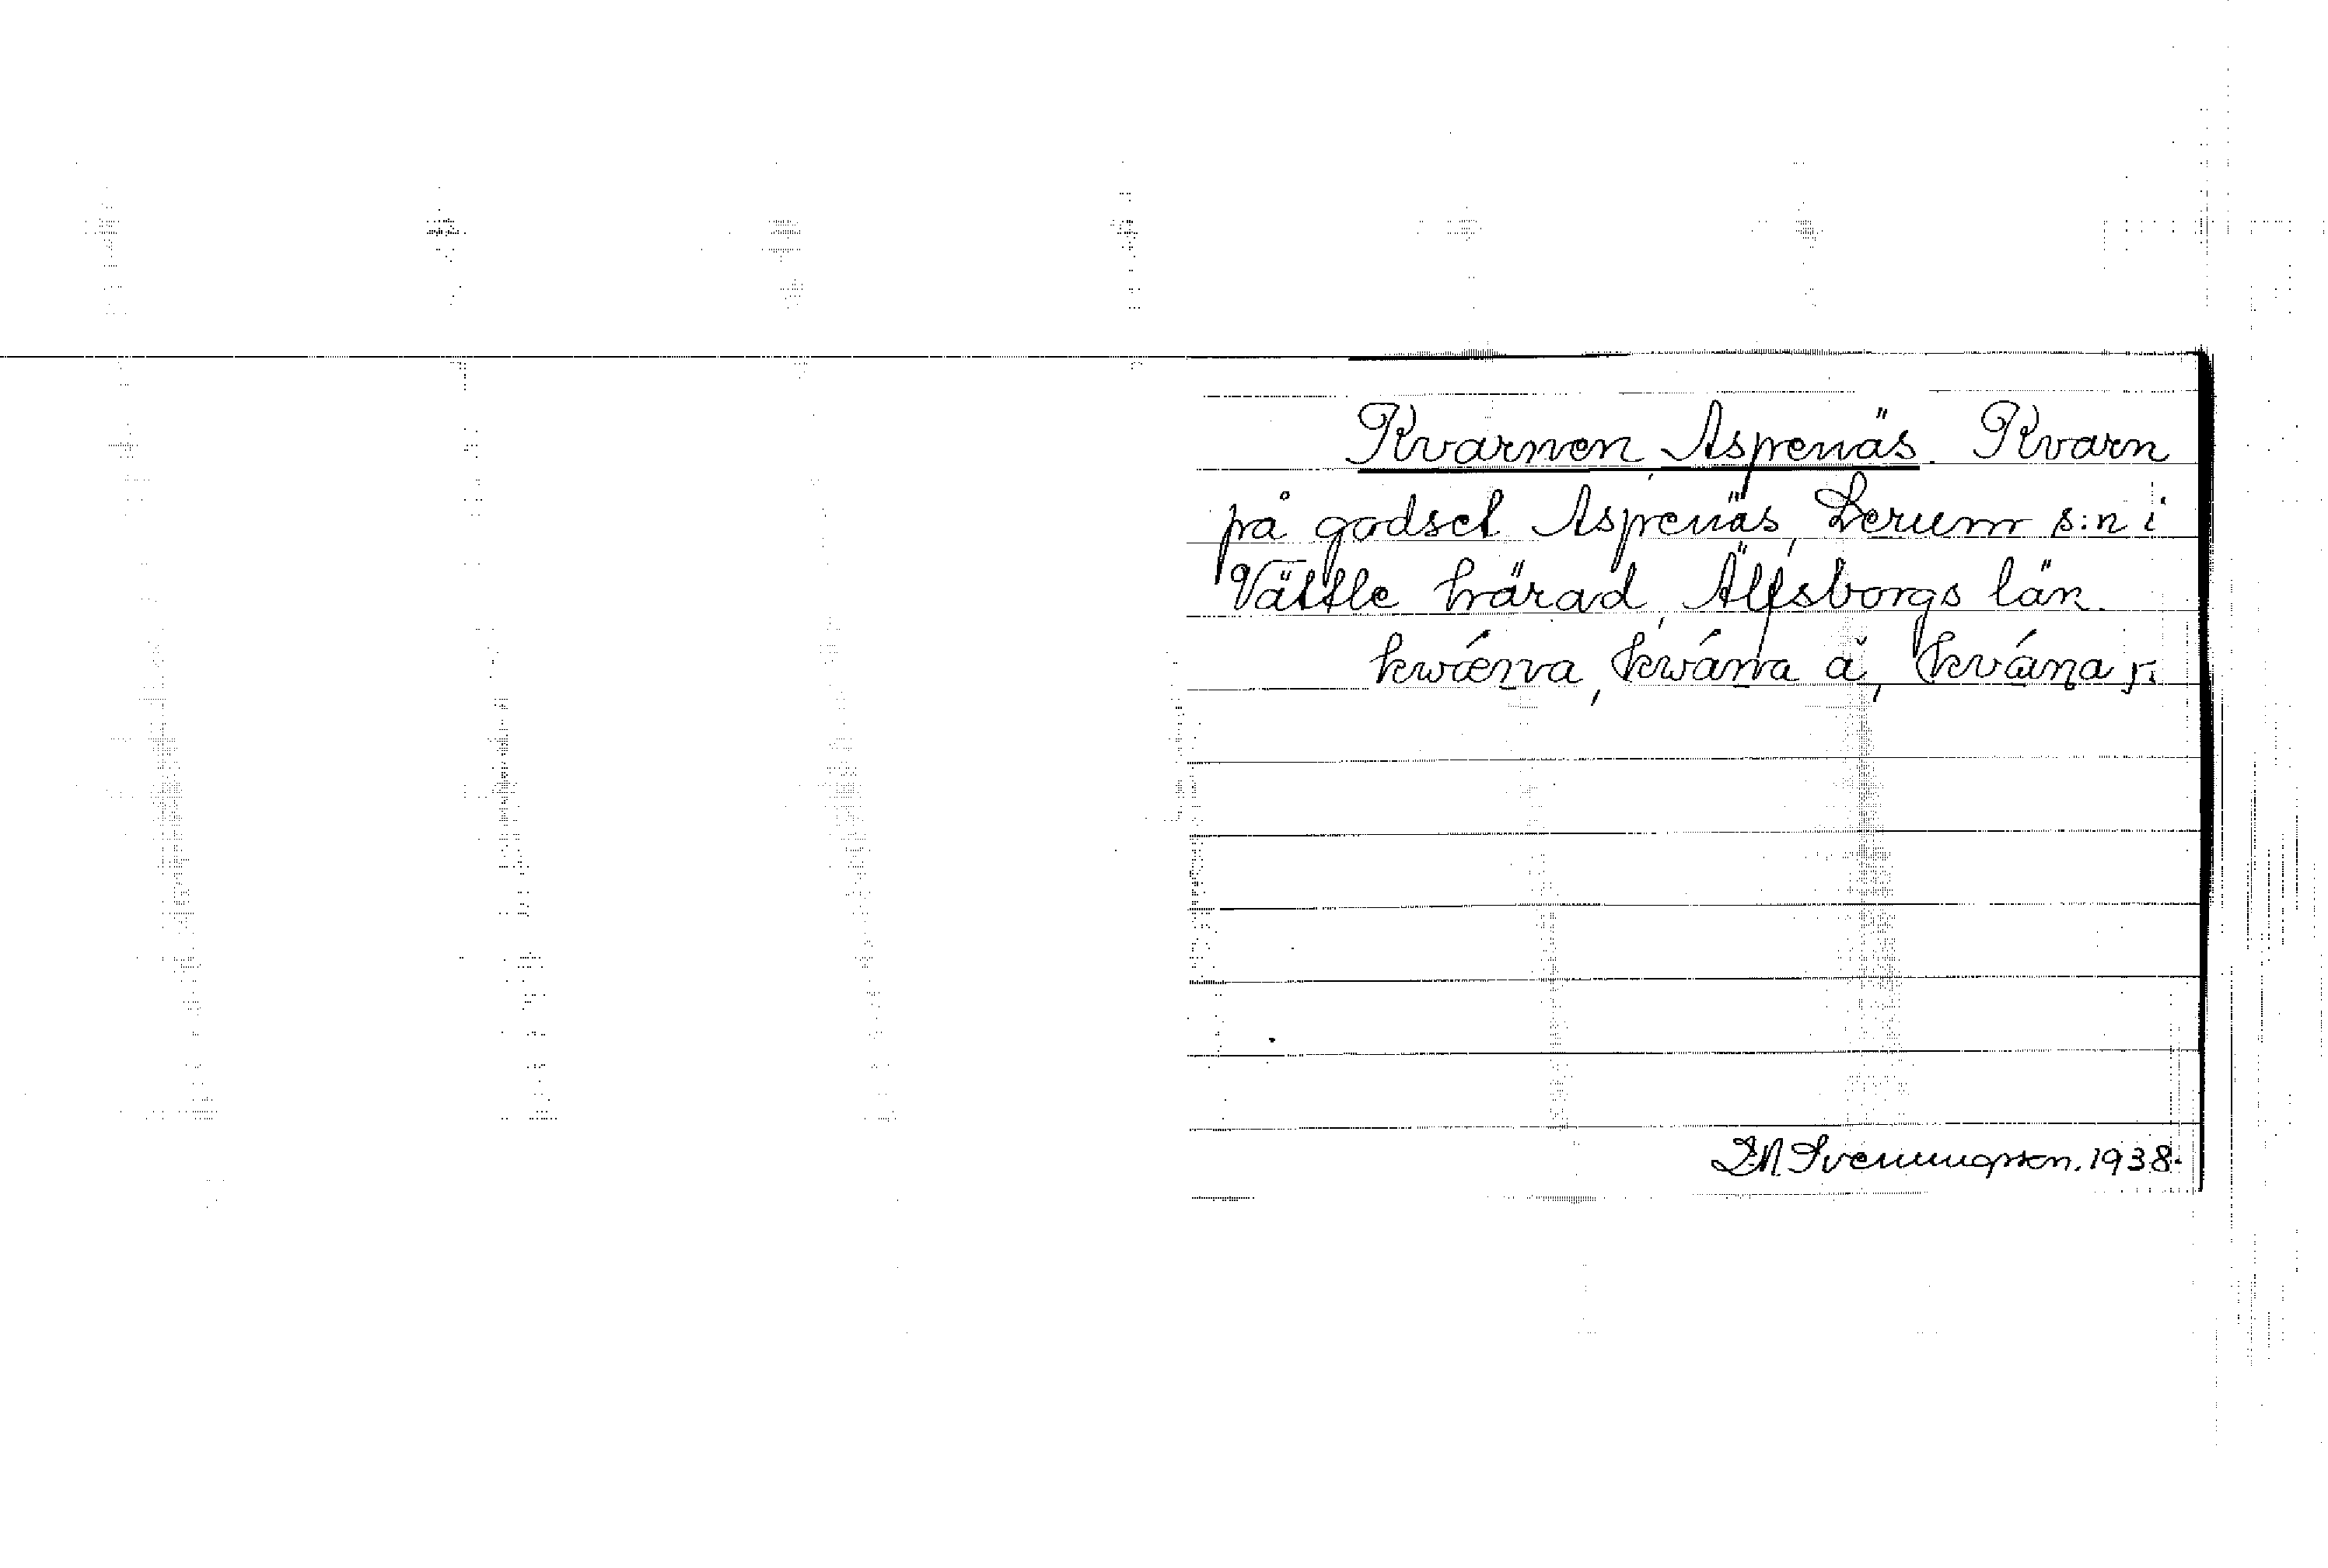 Kvarnen, Aspenäs. Kvarn
på godset Aspenäs, Lerum s:n i
Vättle härad, Älfsborgs län.
kwǽrna, kwárna ä, kvárna yr.
D.N. Svenungsson. 1938.